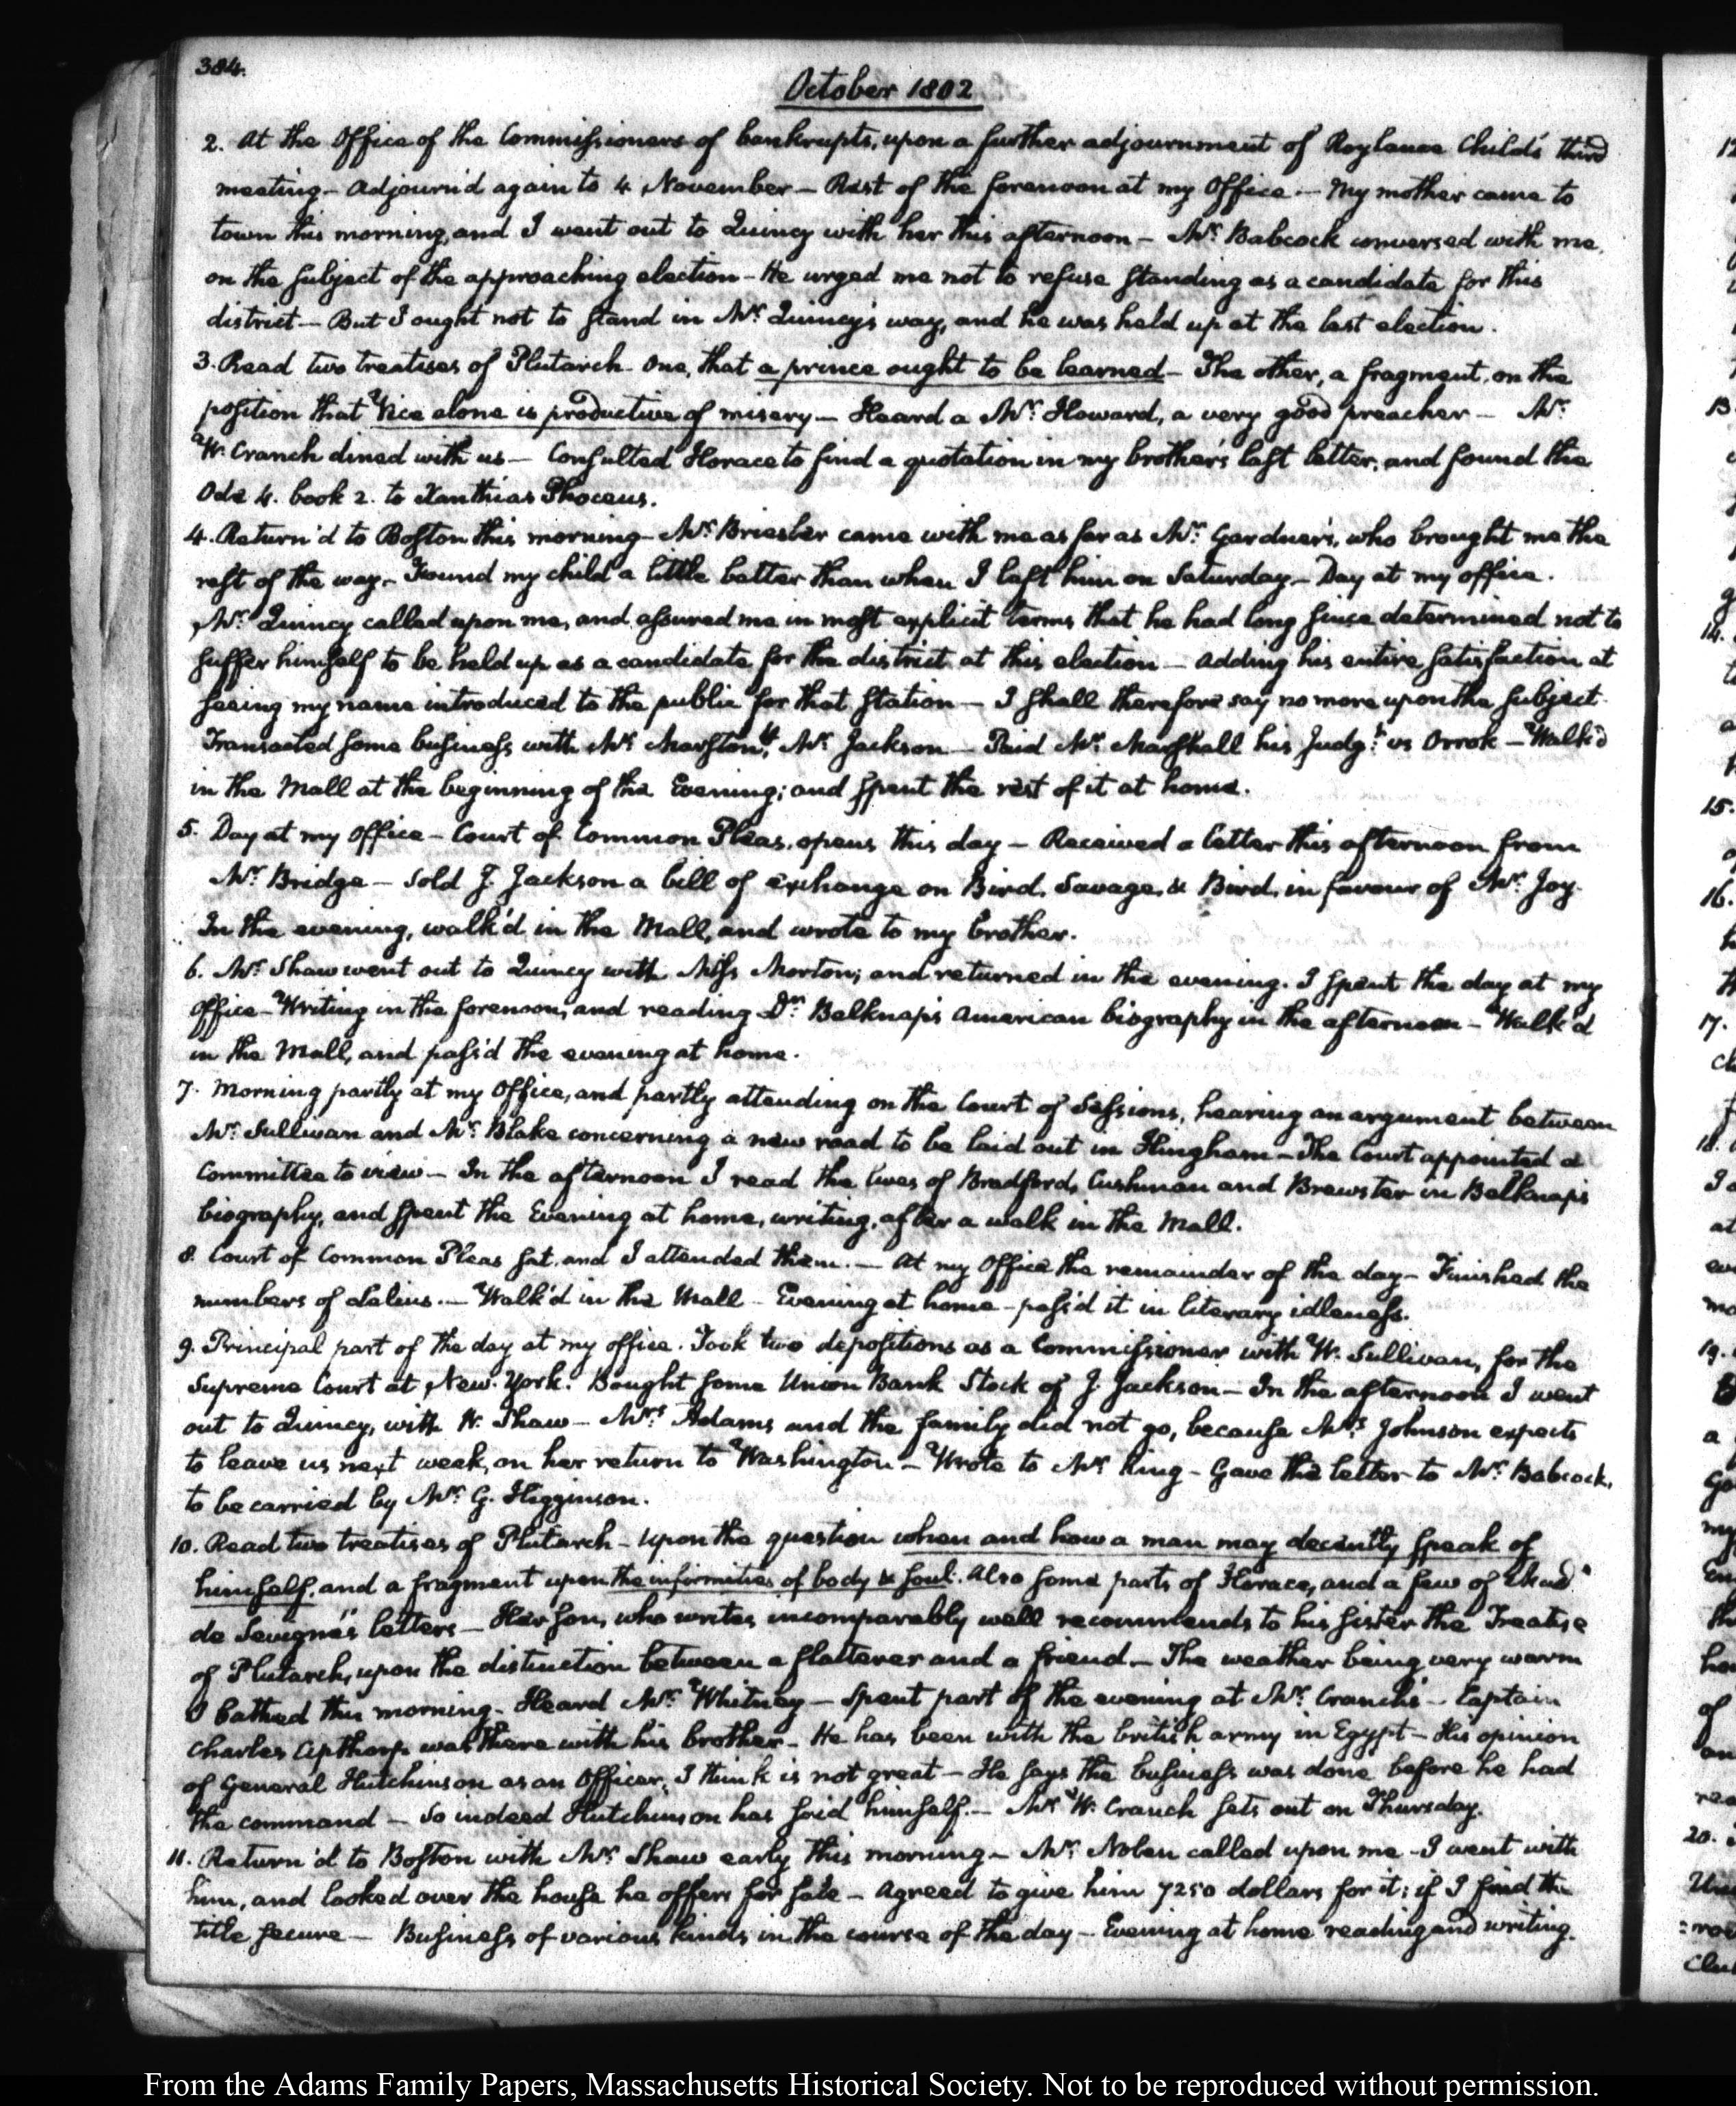 384.
October 1802
2. At the Office of the Commissioners of bankrupts, upon a further adjournment of Roylance Child's third
meeting — Adjourn'd again to 4 November — Rest of the forenoon at my Office. — My mother came to
town this morning, and I went out to Quincy with her this afternoon — Mr. Babcock conversed with me,
on the subject of the approaching election — He urged me not to refuse standing as a candidate for this
district — But I ought not to stand in Mr. Quincy's way, and he was held up at the last election.
3. Read two treatises of Plutarch. One, that a prince ought to be learned — The other, a fragment, on the
position that Vice alone is productive of misery — Heard a Mr. Howard, a very good preacher — Mr.
W. Cranch dined with us — Consulted Horace to find a quotation in my brother's last letter, and found the
Ode 4. book 2. to Xanthias Phoceus.
4. Return'd to Boston this morning — Mr. Briesler came with me as far as Mr. Gardner's, who brought me the
rest of the way. — Found my child a little better than when I left him on Saturday — Day at my office.
Mr. Quincy called upon me, and assured me in most explicit terms that he had long since determined not to
suffer himself to be held up as a candidate for the district at this election — Adding his entire satisfaction at
seeing my name introduced to the public for that station — I shall therefore say no more upon the subject.
Transacted some business with Mr. Marston, & Mr. Jackson — Paid Mr. Marshall his Judgt. vs Orrok — Walk'd
in the Mall at the beginning of the Evening; and spent the rest of it at home.
5. Day at my Office — Court of Common Pleas, opens this day — Received a letter this afternoon from
Mr. Bridge — Sold J. Jackson a bill of exchange on Bird, Savage, & Bird, in favour of Mr. Joy.
In the evening, walk'd in the Mall, and wrote to my brother.
6. Mr. Shaw went out to Quincy with Miss Morton; and returned in the evening. I spent the day at my
Office — Writing in the forenoon, and reading Dr. Belknap's American biography in the afternoon — Walk'd
in the Mall, and pass'd the evening at home.
7. Morning partly at my Office, and partly attending on the Court of Sessions, hearing an argument between
Mr. Sullivan and Mr. Blake concerning a new road to be laid out in Hingham — The Court appointed a
Committee to view — In the afternoon I read the lives of Bradford, Cushman and Brewster in Belknap's
biography, and spent the Evening at home, writing, after a walk in the Mall.
8. Court of Common Pleas sat, and I attended them. — At my Office the remainder of the day — Finished the
numbers of Lælius. — Walk'd in the Mall — Evening at home — pass'd it in literary idleness.
9. Principal part of the day at my office. Took two depositions as a Commissioner with W. Sullivan, for the
Supreme Court at New-York. Bought some Union Bank Stock of J. Jackson — In the afternoon I went
out to Quincy, with W. Shaw — Mrs. Adams and the family did not go, because Mrs. Johnson expects
to leave us next week, on her return to Washington — Wrote to Mr. King — Gave the letter to Mr. Babcock,
to be carried by Mr. G. Higginson.
10. Read two treatises of Plutarch — Upon the question when and how a man may decently speak of
himself, and a fragment upon the infirmities of body & soul. Also some parts of Horace, and a few of Mad.
de Sevigné's letters — Her son, who writes incomparably well recommends to his sister the Treatise
of Plutarch, upon the distinction between a flatterer and a friend. — The weather being very warm
I bathed this morning. Heard Mr. Whitney — Spent part of the evening at Mr. Cranch's — Captain
Charles Apthorp was there with his brother — He has been with the british army in Egypt — His opinion
of General Hutchinson as an Officer, I think is not great — He says the business was done before he had
the command — So indeed Hutchinson has said himself. — Mr. W. Cranch sets out on Thursday.
11. Return'd to Boston with Mr. Shaw early this morning — Mr. Nolen called upon me — I went with
him, and looked over the house he offers for sale — Agreed to give him 7250 dollars for it; if I find the
title secure — Business of various kinds in the course of the day — Evening at home reading and writing.
From the Adams Family Papers, Massachusetts Historical Society. Not to be reproduced without permission.